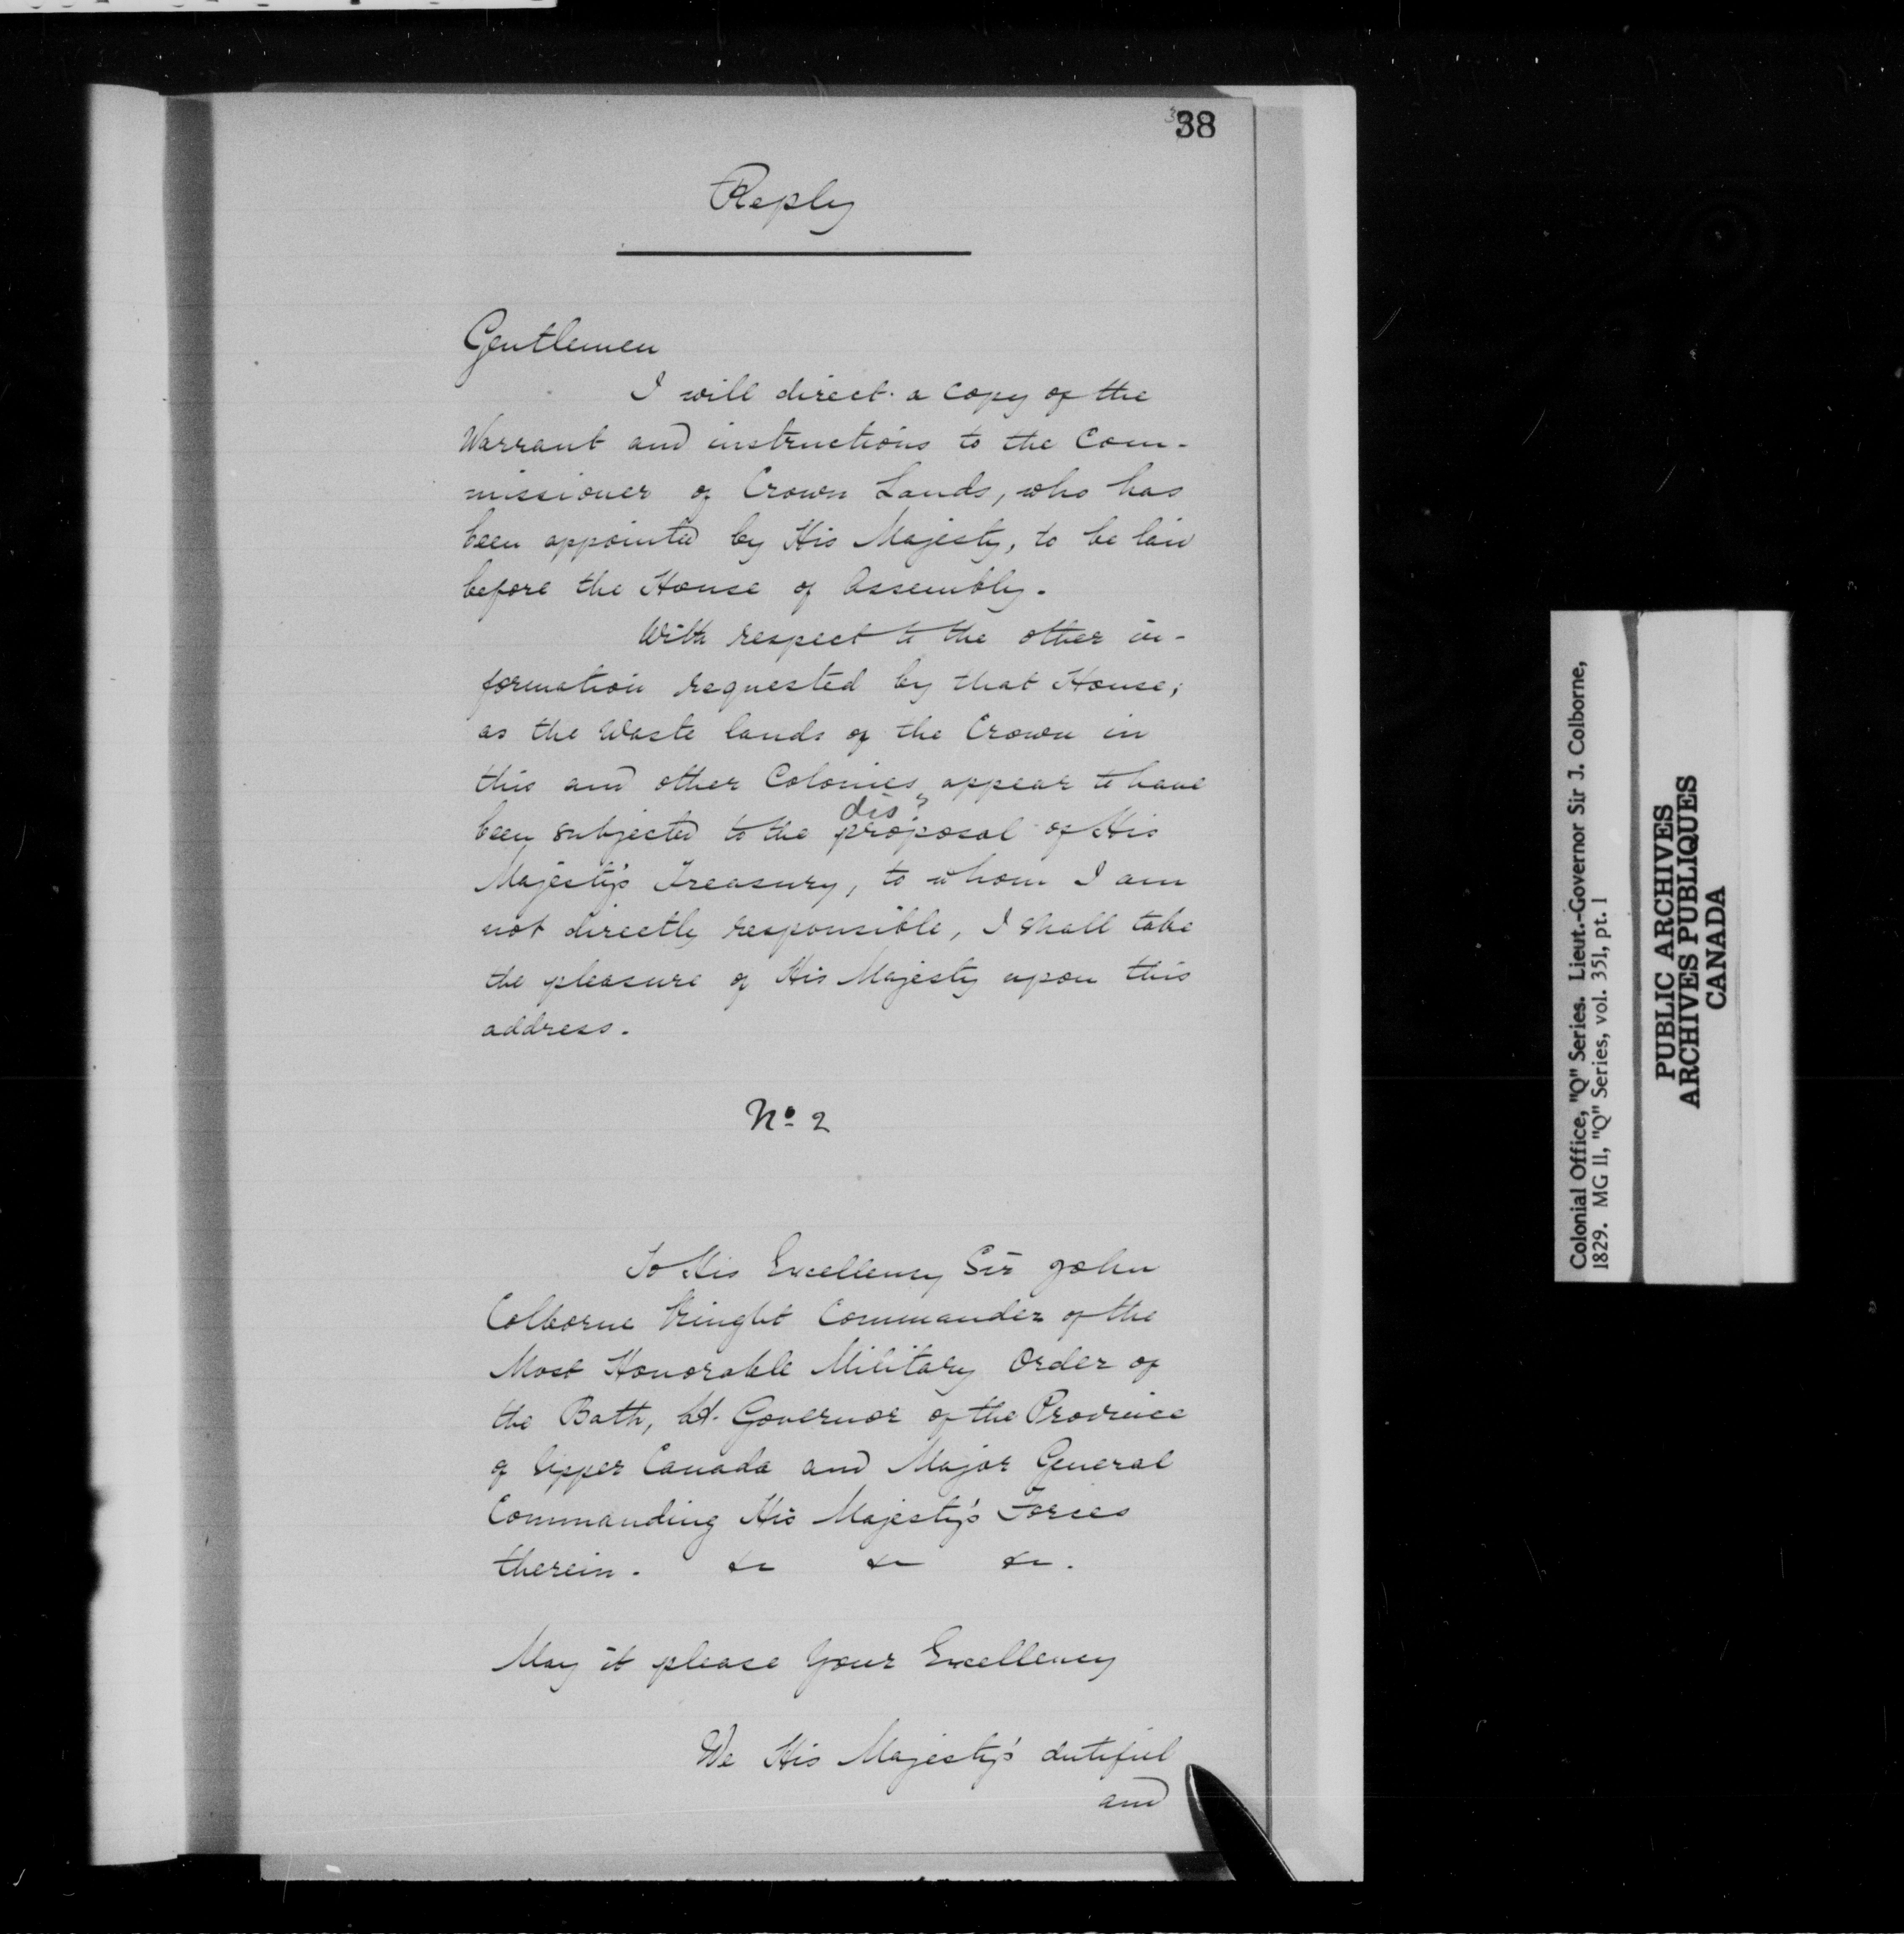 38
Reply
Gentlemen
I will direct a copy of the
Warrant and instructions to the Com-
missioner of Crown Lands, who has
been appointed by His Majesty, to be laid
before the House of Assembly.
With respect to the other in-
formation requested by that House;
as the Waste lands of the Crown in
this and other Colonies appear to have
dis?
been subjected to the proposal of His
Majesty's Treasury, to whom I am
not directly responsible, I shall take
the pleasure of His Majesty upon this
address.
No 2
To His Excellency Sir John
Colborne Knight Commander of the
Most Honorable Military Order of
the Bath, Lt. Governor of the Province
of Upper Canada and Major General
Commanding His Majesty's Forces
therein. &c &c &c.
May it please Your Excellency
We His Majesty's dutiful
and
Colonial Office, "Q" Series. Lieut.-Governor Sir J. Colborne,
1829. MG 11, "Q" Series, vol. 351, pt. 1
PUBLIC ARCHIVES
ARCHIVES PUBLIQUES
CANADA